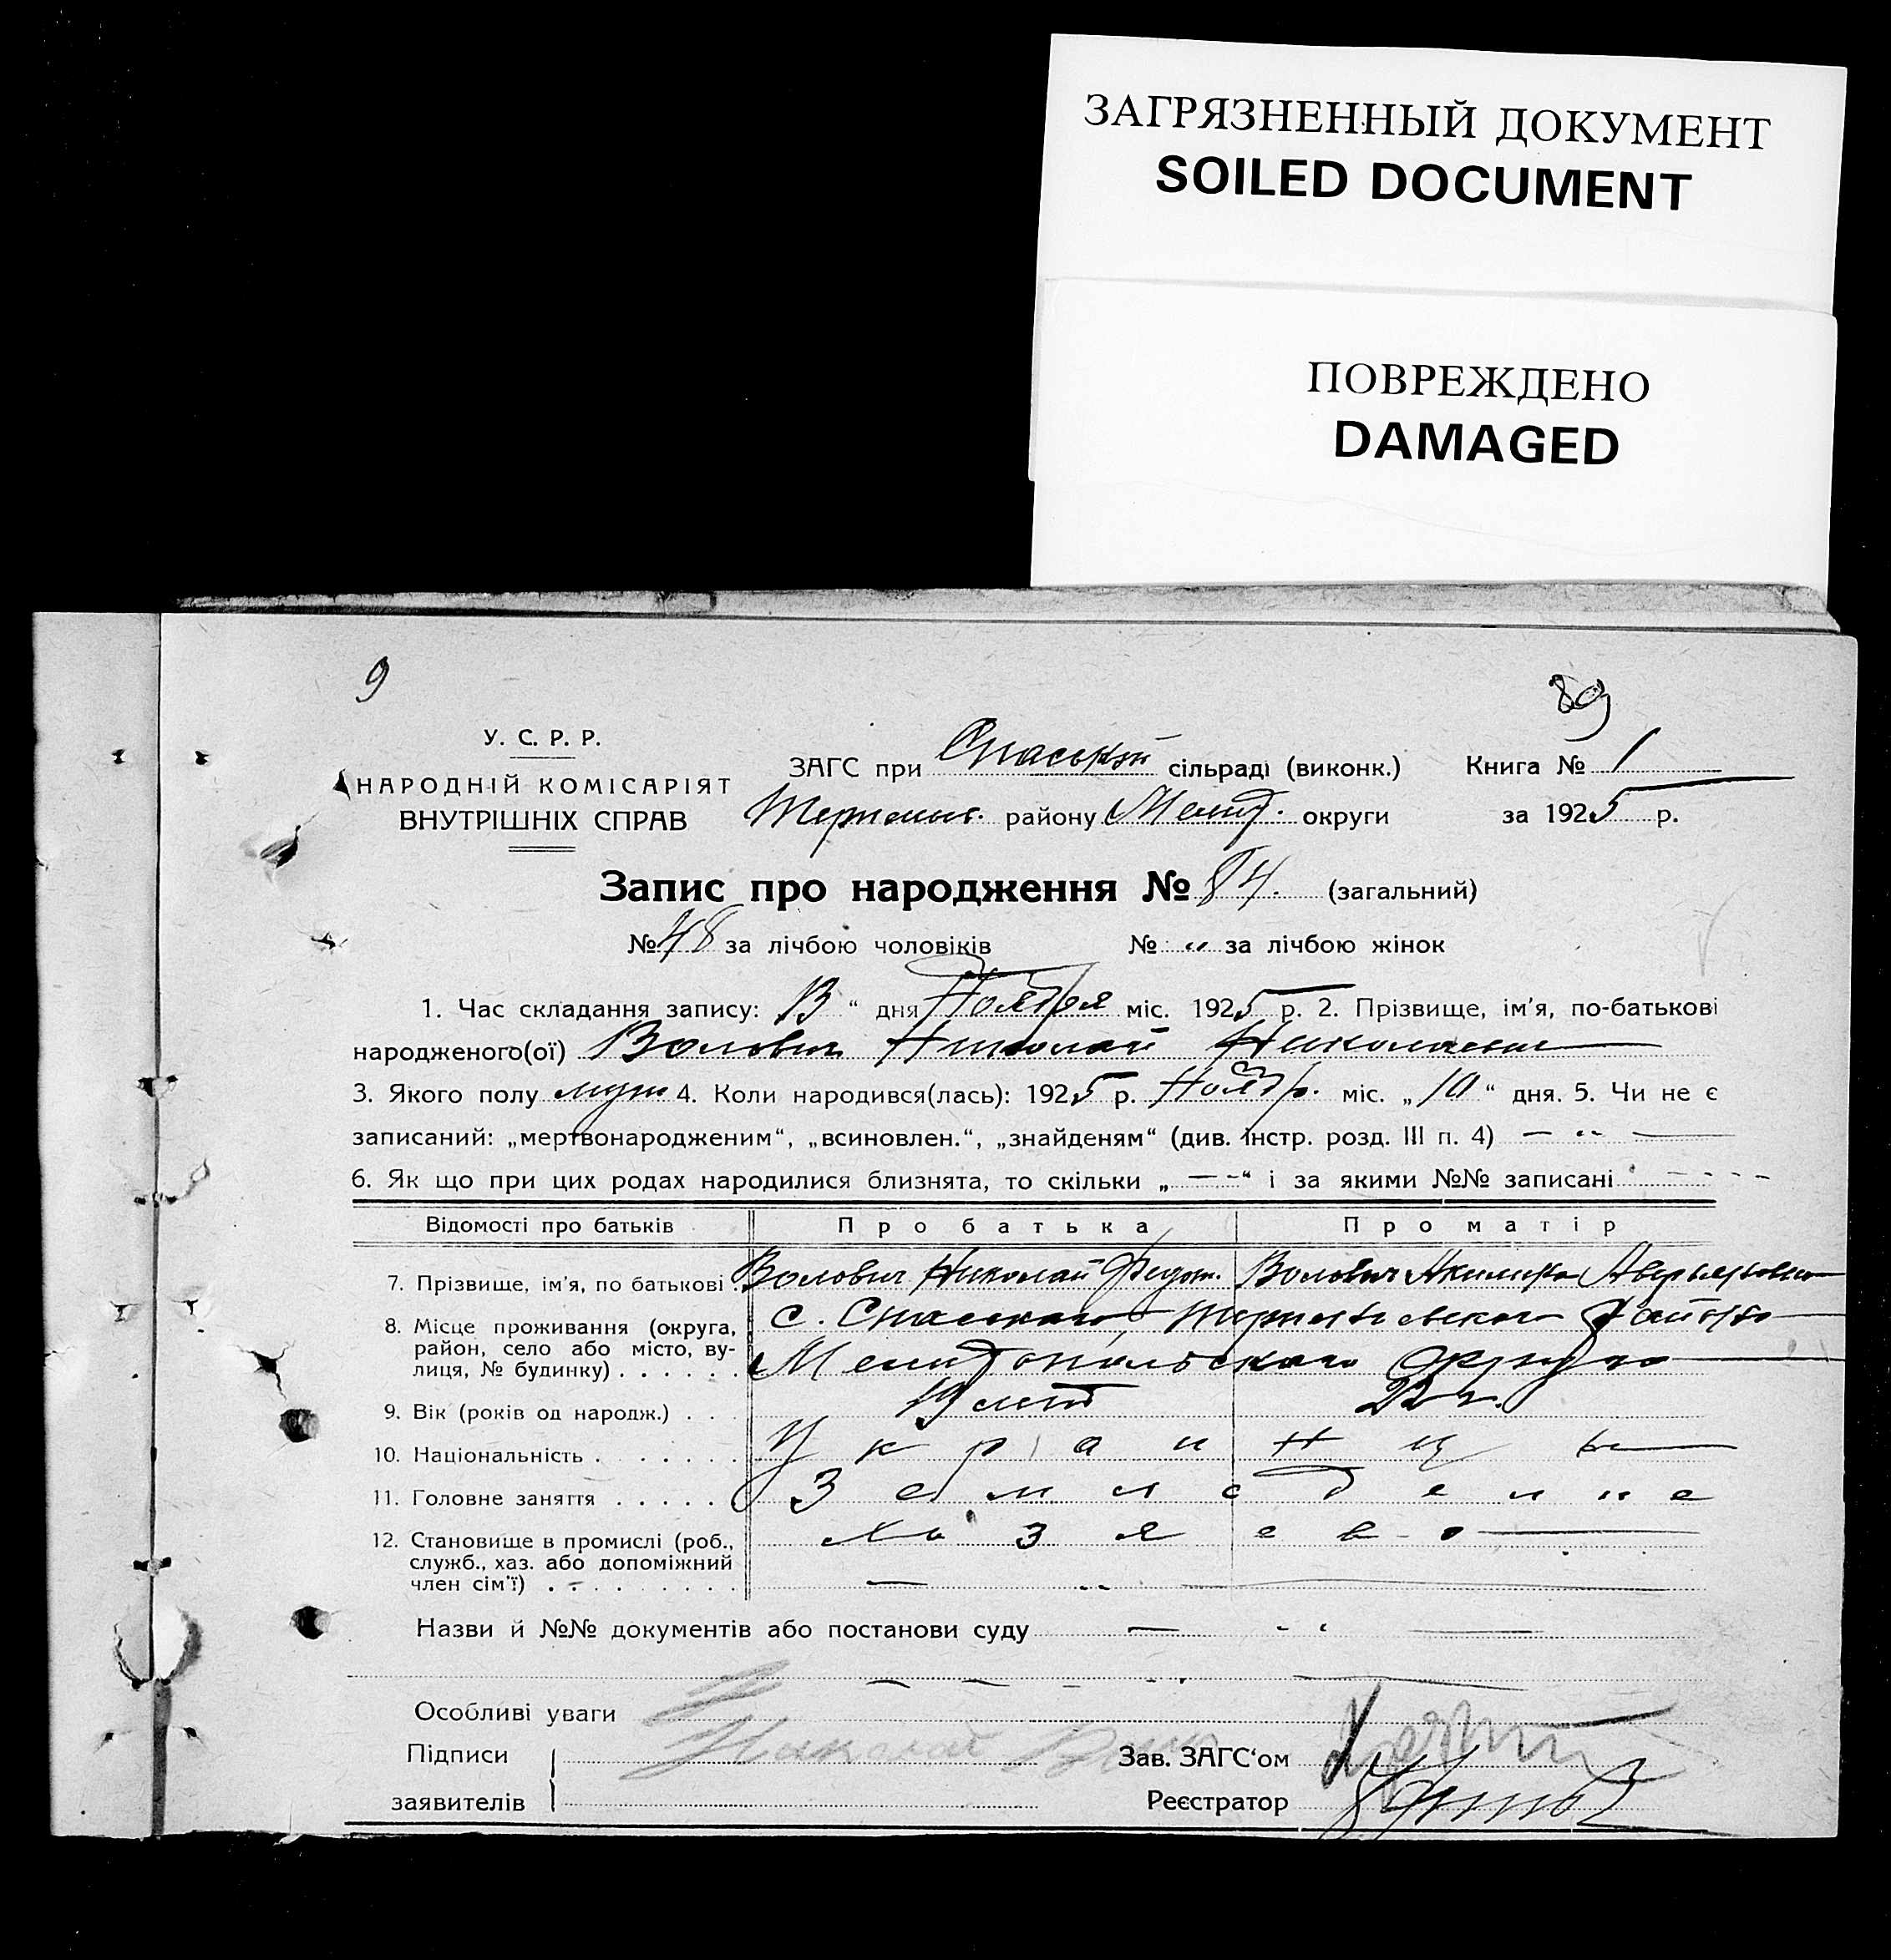 ЗАГРЯЗНЕННЫЙ ДОКУМЕНТ
SOILED DOCUMENT
ПОВРЕЖДЕНО
DAMAGED
9
89
У. С. Р. Р.
НАРОДНІЙ КОМІСАРІЯТ
ВНУТРІШНІХ СПРАВ
ЗАГС при Спаській сільраді (виконк.) Книга № 1
району Мелит. округи за 1925 р.
Запис про народження № 84. (загальний)
№ 48 за лічбою чоловіків № " за лічбою жінок
1. Час складання запису: 13 “ дня Ноября міс. 1925 р. 2. Прізвище, ім'я, по-батькові
народженого(ої) Волович Николай Николаевич
3. Якого полу муж 4. Коли народився(лась): 1925 р. Ноябр. міс. „ 10 “ дня. 5. Чи не є
записаний: „мертвонародженим“, „всиновлен.“, „знайденям“ (див. інстр. розд. III п. 4) — " —
6. Як що при цих родах народилися близнята, то скільки „ — - “ і за якими №№ записані
Відомості про батьків Про батька Про матір
7. Прізвище, ім'я, по батькові Волович Николай Федот. Волович Акилина
8. Місце проживання (округа, район, село або місто, вулиця, № будинку) . . . . . .
с. Спаского, района
Мелитопольского округа
9. Вік (років од народж.) . . 19 лет 22 г.
10. Національність . . . . . . . Украинцы
11. Головне заняття . . . . . Земледелие
12. Становище в промислі (роб., служб., хаз. або допоміжний член сім'ї) . . . . . . . . .
Назви й №№ документів або постанови суду — " —
Особливі уваги
Підписи Николай
Зав. ЗАГС‘ом
заявителів
Реєстратор